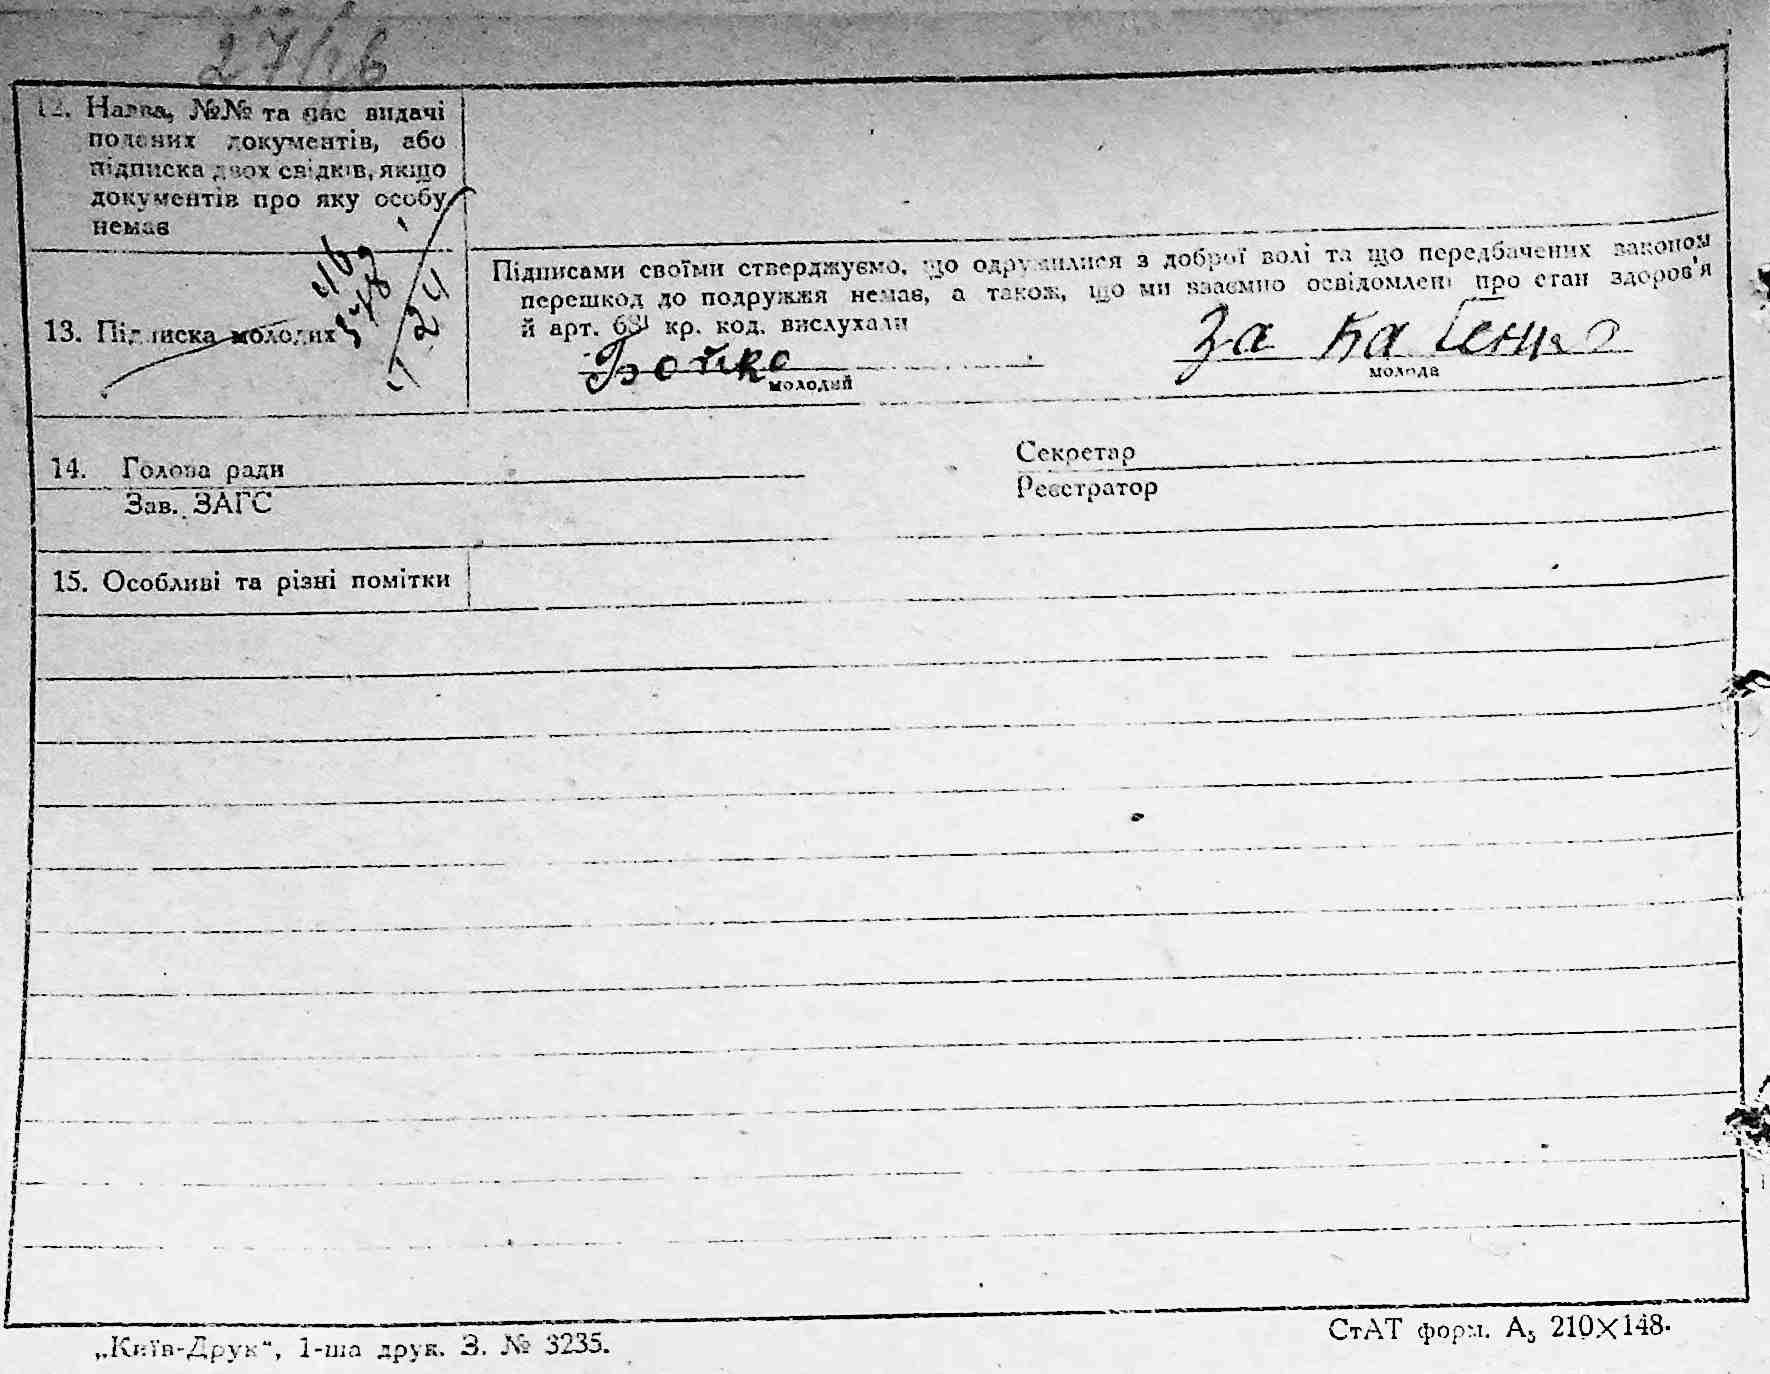 27/16
12. Назва, №№ та час видачі
поданих документів, або
підписка двох свідків, якщо
документів про яку особу
немає
Підписами своїми стверджуємо, що одружилися з доброї волі та що передбачених законом
перешкод до подружжя немає, а також, що ми взаємно освідомлені про стан здоров'я
й арт. кр. код. вислухали
13. Підписка молодих
Бойко
молодий
молода
14. Голова ради
Секретар
Зав. ЗАГС
Реєстратор
15. Особливі та різні помітки
„Київ-Друк“, 1-ша друк. З. № 3235.
СтАТ форм. А₅ 210×148.